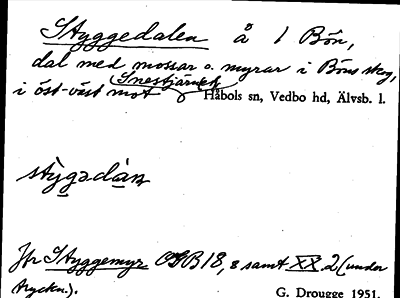 Styggedalen å 1 Bön,
dal med mossar o. myrar i Böns skog,
i öst-väst mot Snestjärnet
Håbols sn, Vedbo hd, Älvsb. l.
Jfr Styggemyr OGB 18, 8 samt XX 2 (under
tryckn.).
G. Drougge 1951.